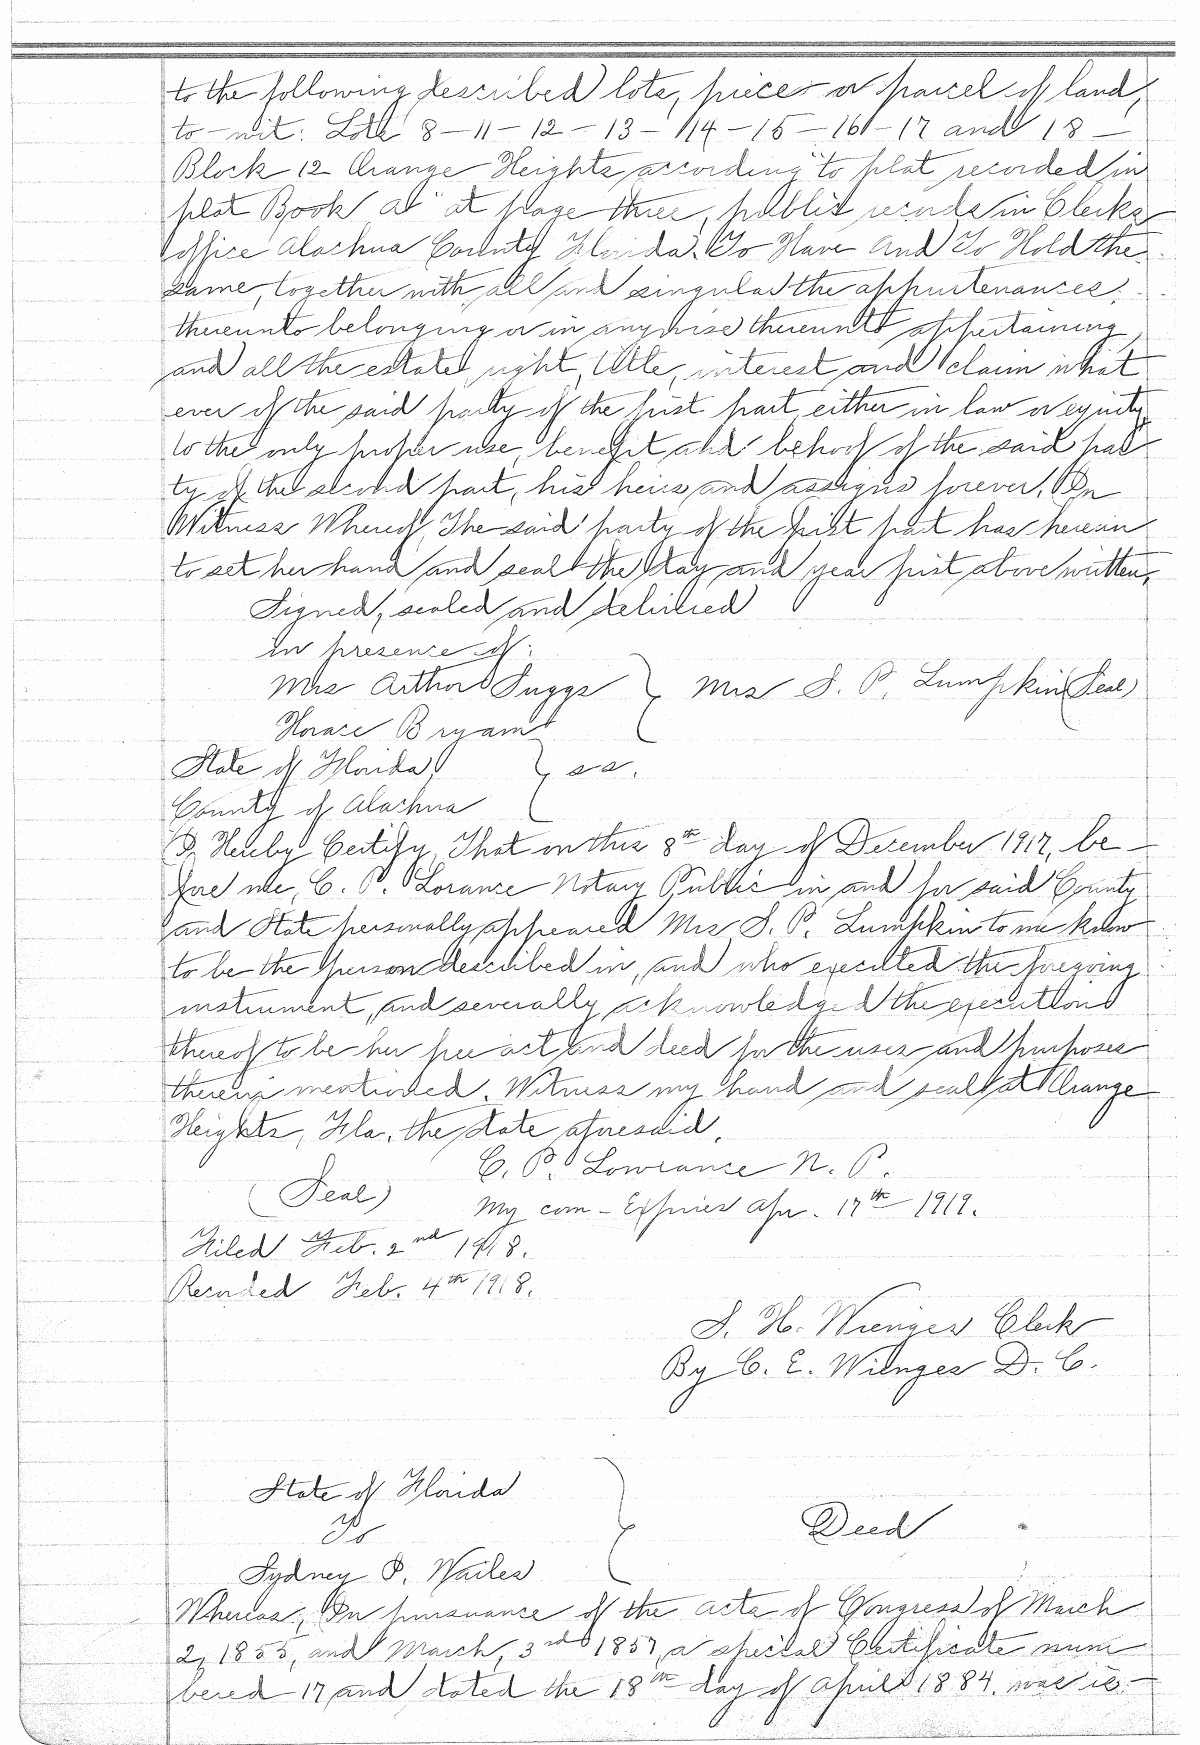 to the following described lots, piece or parcel of land,
to-wit: Lots 8-11-12-13-14-15-16-17 and 18-
Block 12 Orange Heights, according to plat recorded in
plat Book "A" at page three, public records in Clerks
office Alachua County Florida. To Have And To Hold the
same, together with all and singular the appurtenances,
thereunto belonging or in anywise thereunto appertaining
and all the estate, right, title, interest and claim what
ever of the said party of the first part, either in law or equity,
to the only proper use, benefit and behoof of the said par
ty of the second part, his heirs and assigns forever. In
Witness Whereof, The said party of the first part has hereun
to set her hand and seal the day and year first above written.
Signed, sealed and delivered
in presence of:
Mrs Arthur Suggs } Mrs S. P. Lumpkin (Seal)
Horace Bryant
State of Florida } ss.
County of Alachua
I Hereby Certify, That on this 8th day of December 1917, be-
fore me, C. P. Lorance Notary Public in and for said County
and State personally appeared Mrs S. P. Lumpkin to me know
to be the person described in, and who executed the foregoing
instrument, and severally acknowledged the execution
thereof to be her free act and deed for the uses and purposes
therein mentioned. Witness my hand and seal at Orange
Heights, Fla., the date aforesaid.
C. P. Lowrance N. P.
(Seal) My com- Expires Apr. 17th 1919.
Filed Feb. 2nd 1918.
Recorded Feb. 4th 1918.
S. H. Wienges Clerk
By C. E. Wienges D. C.
State of Florida
To } Deed
Sydney I. Wailes
Whereas, In pursuance of the acts of Congress of March
2, 1855, and March, 3rd 1857, a special Certificate num
bered 17 and dated the 18th day of April 1884, was is-